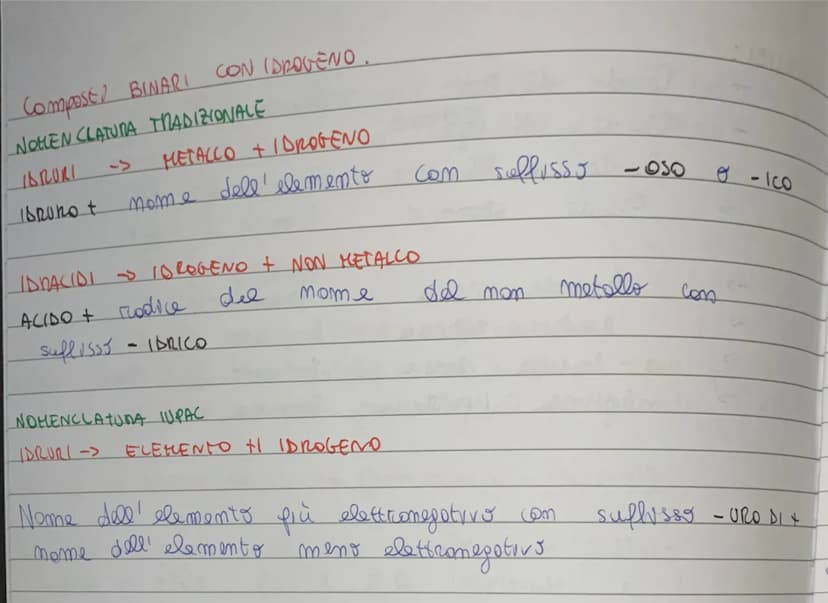 COMPOSTI BINARI CON IDROGENO.
NOMENCLATURA TRADIZIONALE
IDRURI -> METALLO + IDROGENO
IDRURO + nome dell'elemento con suffisso -OSO o -ICO
IDRACIDI -> IDROGENO + NON METALLO
ACIDO + radice del nome del non metallo con
suffisso - IDRICO
NOMENCLATURA IUPAC
IDRURI -> ELEMENTO + IDROGENO
Nome dell'elemento più elettronegativo con suffisso - URO DI +
nome dell'elemento meno elettronegativo